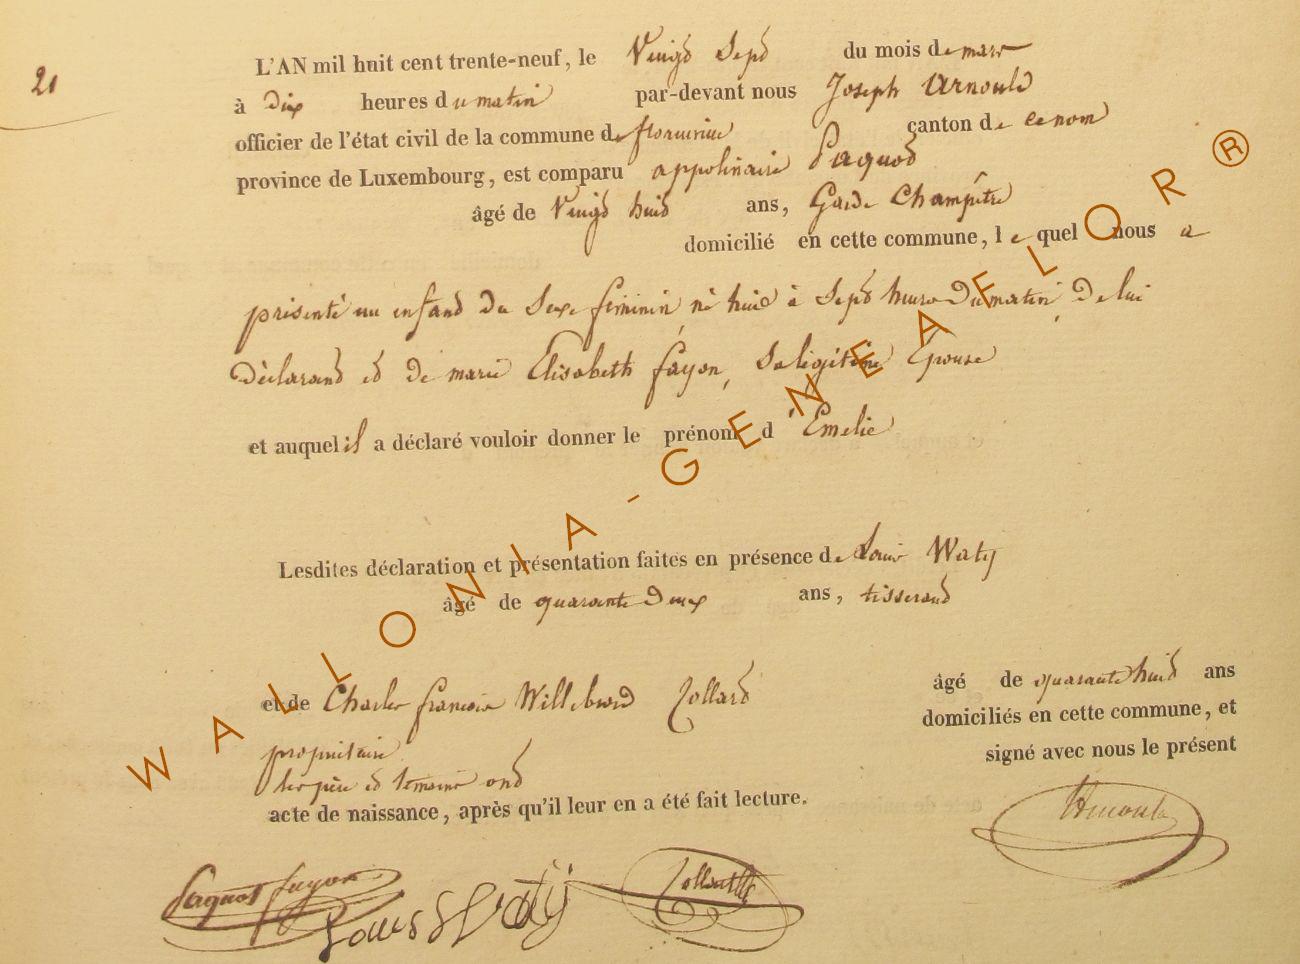 21
L'AN mil huit cent trente-neuf, le Vingt Sept du mois de mars
à dix heures du matin par-devant nous Joseph Arnould
officier de l'état civil de la commune de canton de
province de Luxembourg, est comparu appolinaire Paquot
âgé de Vingt huit ans, Garde Champêtre
domicilié en cette commune, le quel nous a
présenté un enfant du Sexe féminin né hier à Sept heures du matin, de lui
déclarant et de marie Elisabeth fayon, Sa légitime Epouse
et auquel il a déclaré vouloir donner le prénom d'Emelie
Lesdites déclaration et présentation faites en présence de Louis Waty
âgé de quarante Deux ans, tisserand
et de Charles françois Willebrord Collard âgé de quarante huit ans
propriétaire domiciliés en cette commune, et
les père et témoins ont signé avec nous le présent
acte de naissance, après qu'il leur en a été fait lecture.
Arnould
Paquot fayon Louis Waty Collard
WALLONIA-GENEAFLOR®